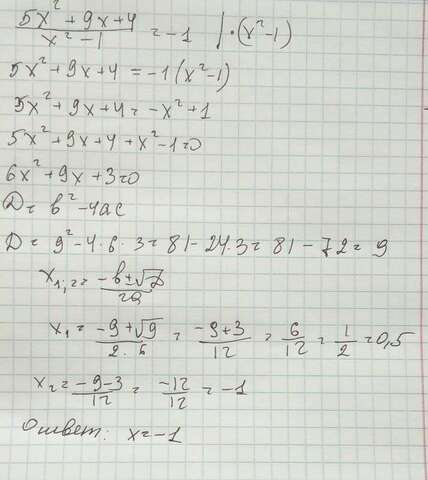 (5x² + 9x + 4)/(x² - 1) = -1 | · (x² - 1)
5x² + 9x + 4 = -1(x² - 1)
5x² + 9x + 4 = -x² + 1
5x² + 9x + 4 + x² - 1 = 0
6x² + 9x + 3 = 0
D = b² - 4ac
D = 9² - 4 · 6 · 3 = 81 - 24·3 = 81 - 72 = 9
x₁,₂ = (-b ± √D)/(2a)
x₁ = (-9 + √9)/(2 · 6) = (-9 + 3)/12 = 6/12 = 1/2 = 0,5
x₂ = (-9 - 3)/12 = -12/12 = -1
Ответ: x = -1